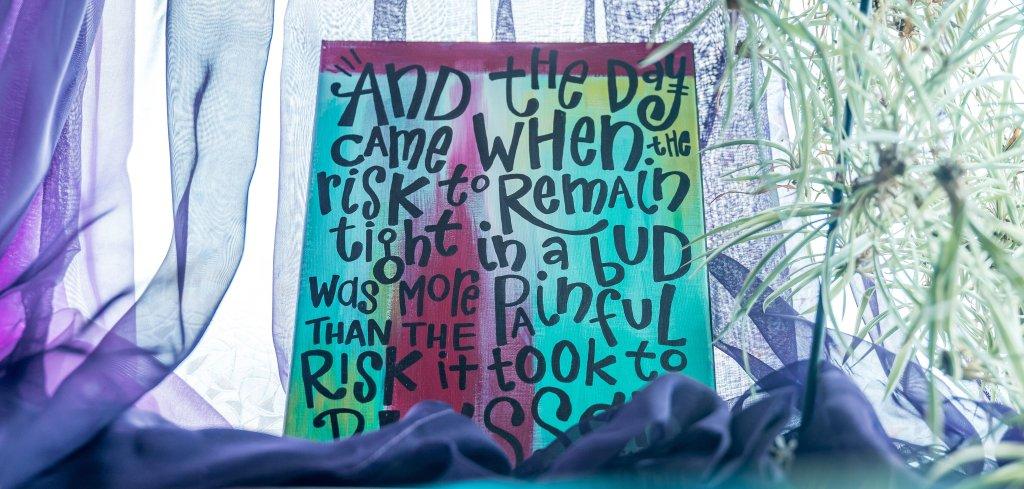 AND the Day
came WHEN the
risk to Remain
tight in a bUD
was more Painful
THAN THE
RISK it took to